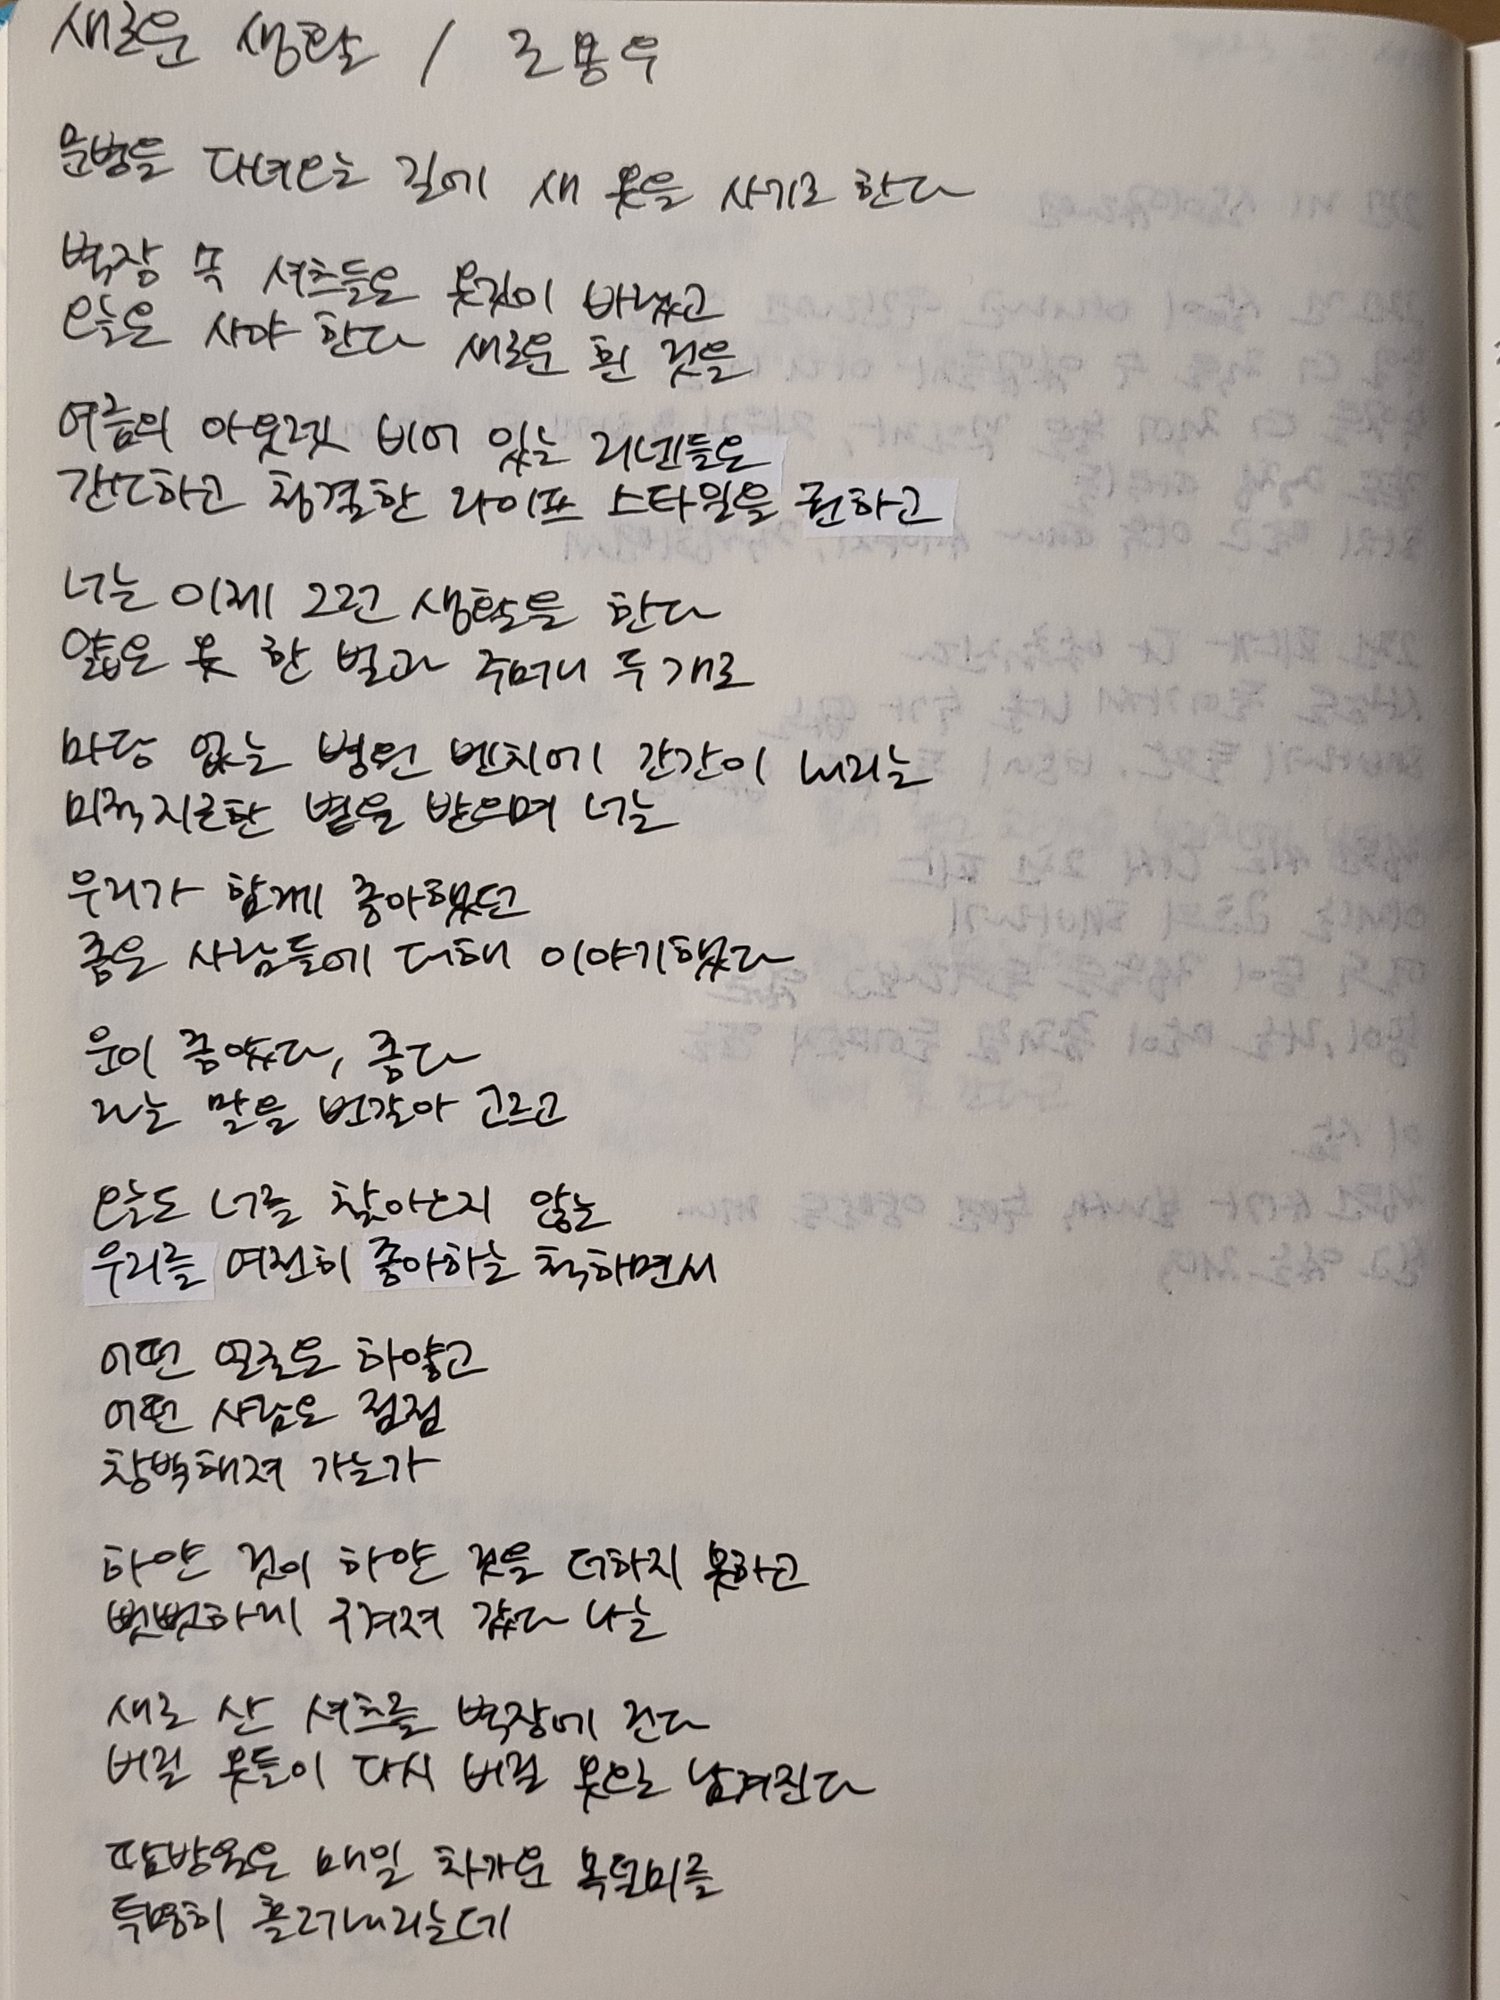 새로운 생활 / 조용우
문병을 다녀오는 길에 새 옷을 사기로 한다
벽장 속 셔츠들은 옷깃이 바랬고
오늘은 사야 한다 새로운 흰 것을
여름의 아웃렛 비어 있는 리넨들은
간단하고 청결한 라이프 스타일을 권하고
너는 이제 그런 생활을 한다
얇은 옷 한 벌과 주머니 두 개로
마당 없는 병원 벤치에 간간이 내리는
미적지근한 볕을 받으며 너는
우리가 함께 좋아했던
좋은 사람들에 대해 이야기했다
운이 좋았다, 좋다
라는 말을 번갈아 고르고
오늘도 너를 찾아오지 않는
우리를 여전히 좋아하는 척하면서
어떤 얼굴은 하얗고
어떤 사람은 점점
창백해져 가는가
하얀 것이 하얀 것을 더하지 못하고
뻣뻣하게 구겨져 갔다 나는
새로 산 셔츠를 벽장에 건다
버릴 옷들이 다시 버릴 옷으로 남겨진다
땀방울은 매일 차가운 목덜미를
투명히 흘러내리는데